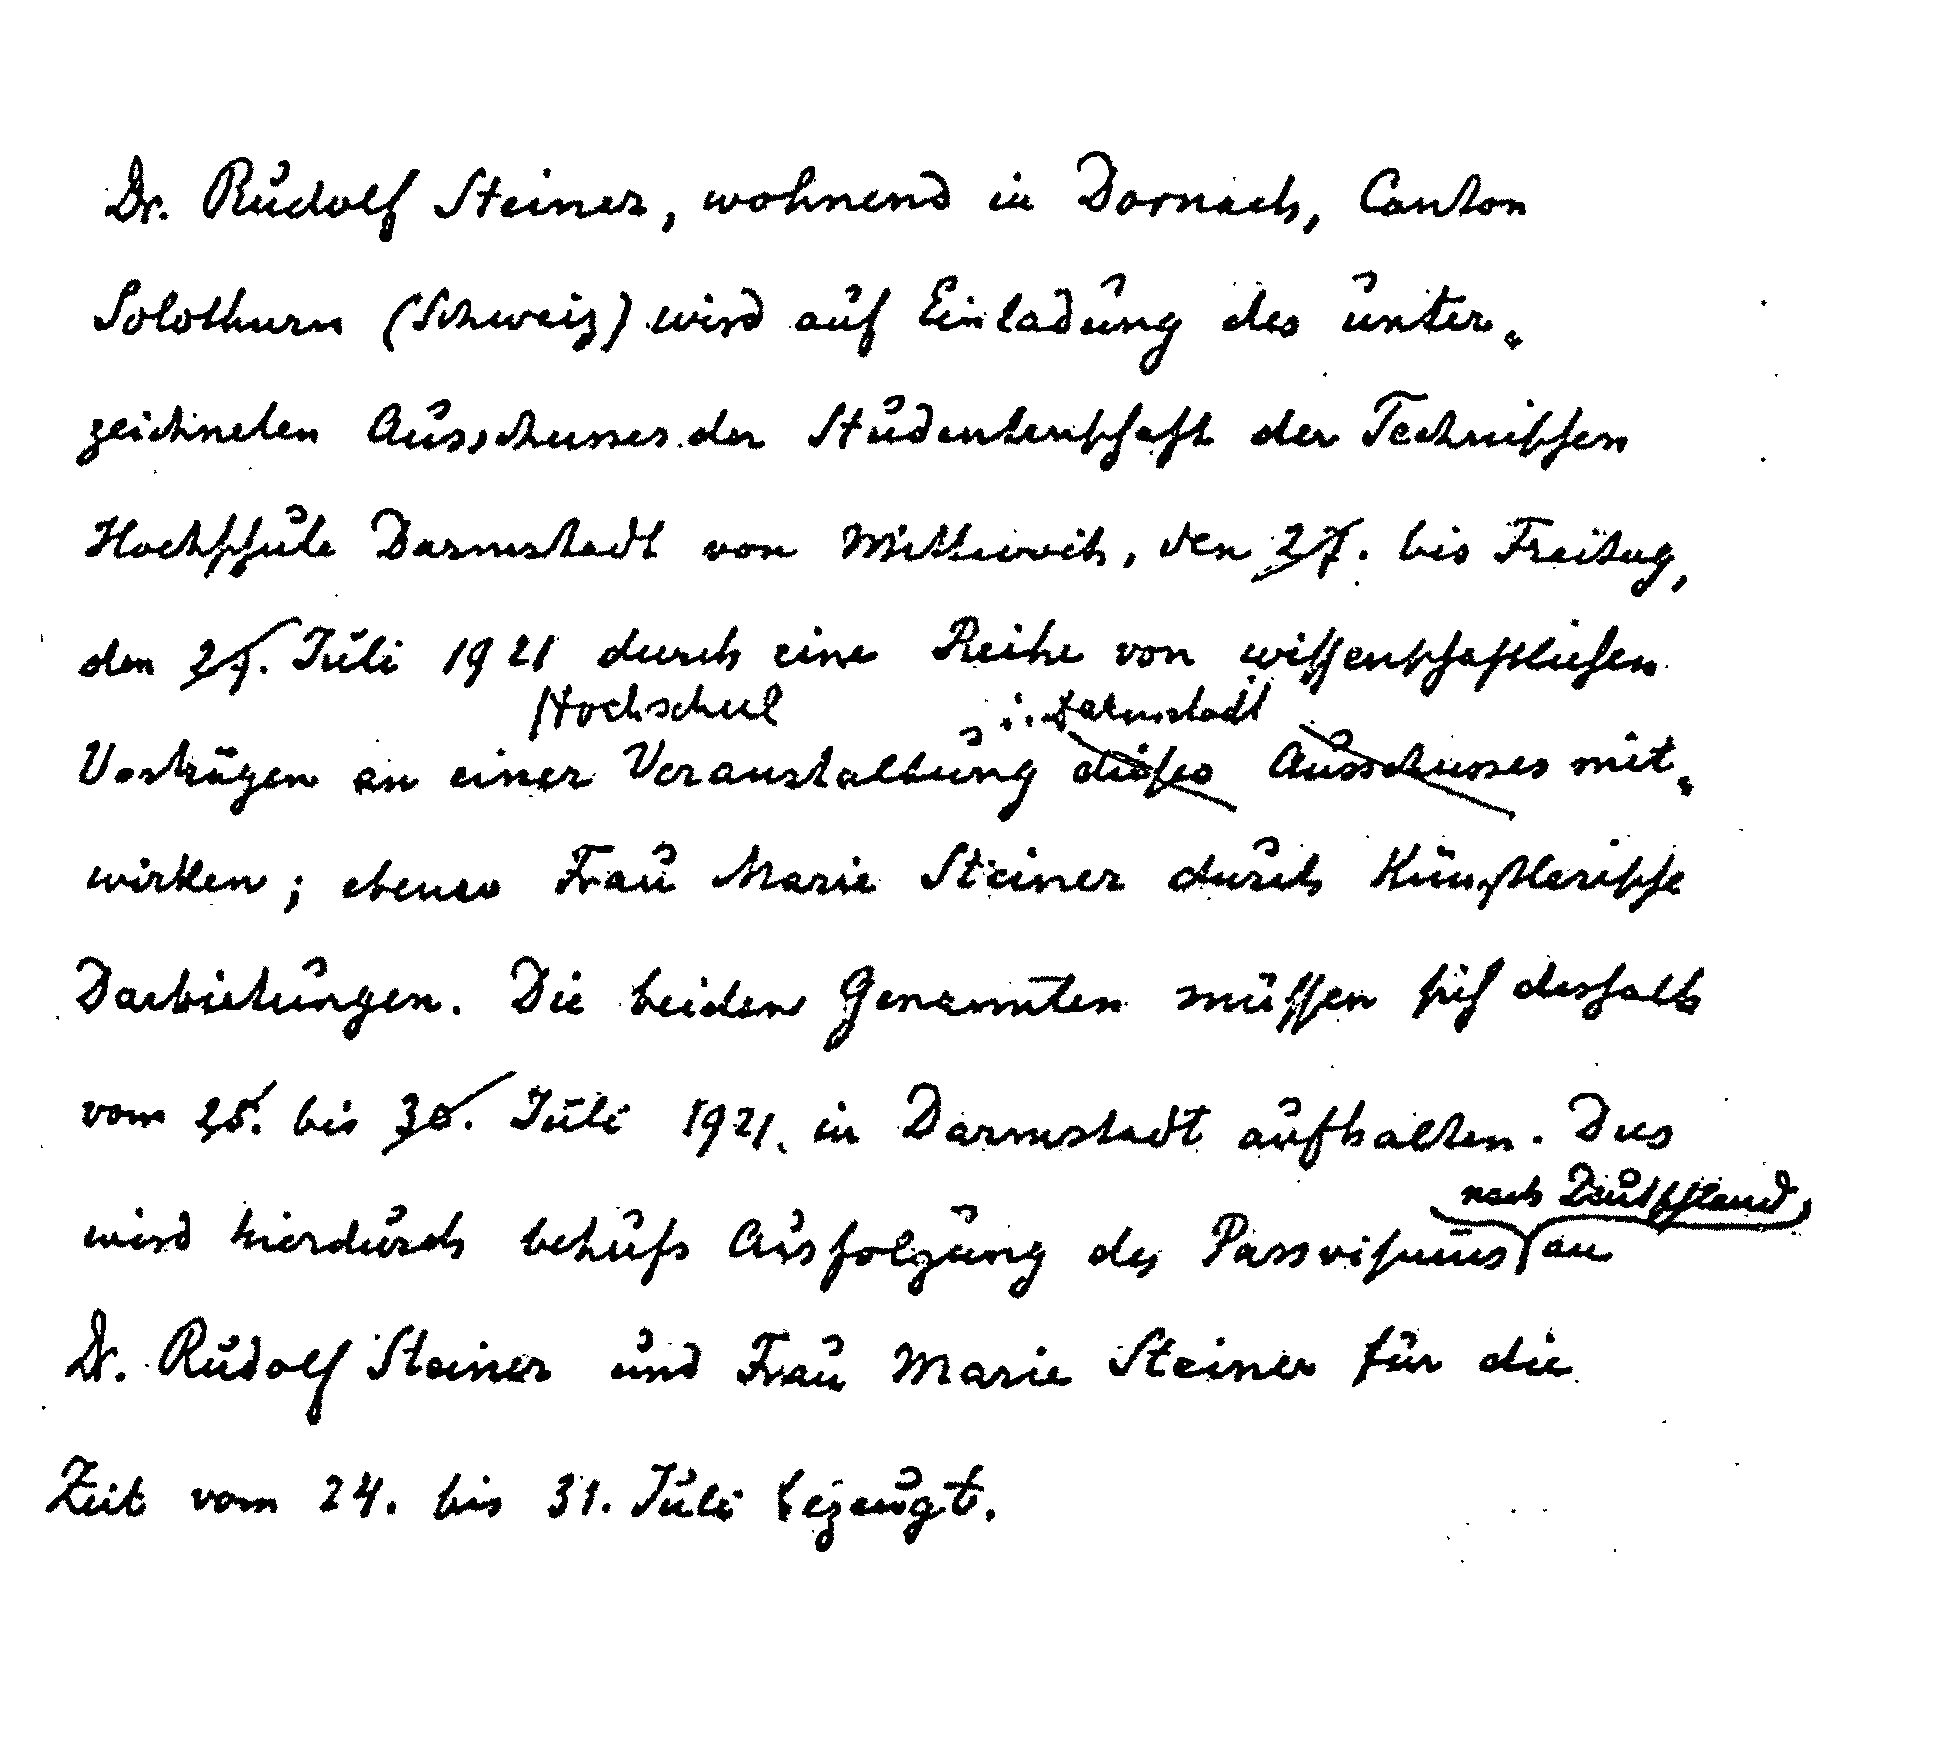 Dr. Rudolf Steiner, wohnend in Dornach, Canton
Solothurn (Schweiz) wird auf Einladung des unter-
zeichneten Ausschusses der Studentenschaft der Technischen
Hochschule Darmstadt von Mittwoch, den 27. bis Freitag,
den 29. Juli 1921 durch eine Reihe von wissenschaftlichen
Hochschul i. Darmstadt
Vorträgen an einer Veranstaltung dieses Ausschusses mit-
wirken; ebenso Frau Marie Steiner durch künstlerische
Darbietungen. Die beiden Genannten müssen sich deshalb
vom 25. bis 30. Juli 1921. in Darmstadt aufhalten. Dies
nach Deutschland,
wird hierdurch behufs Ausfolgung des Passvisums an
Dr. Rudolf Steiner und Frau Marie Steiner für die
Zeit vom 24. bis 31. Juli bezeugt.